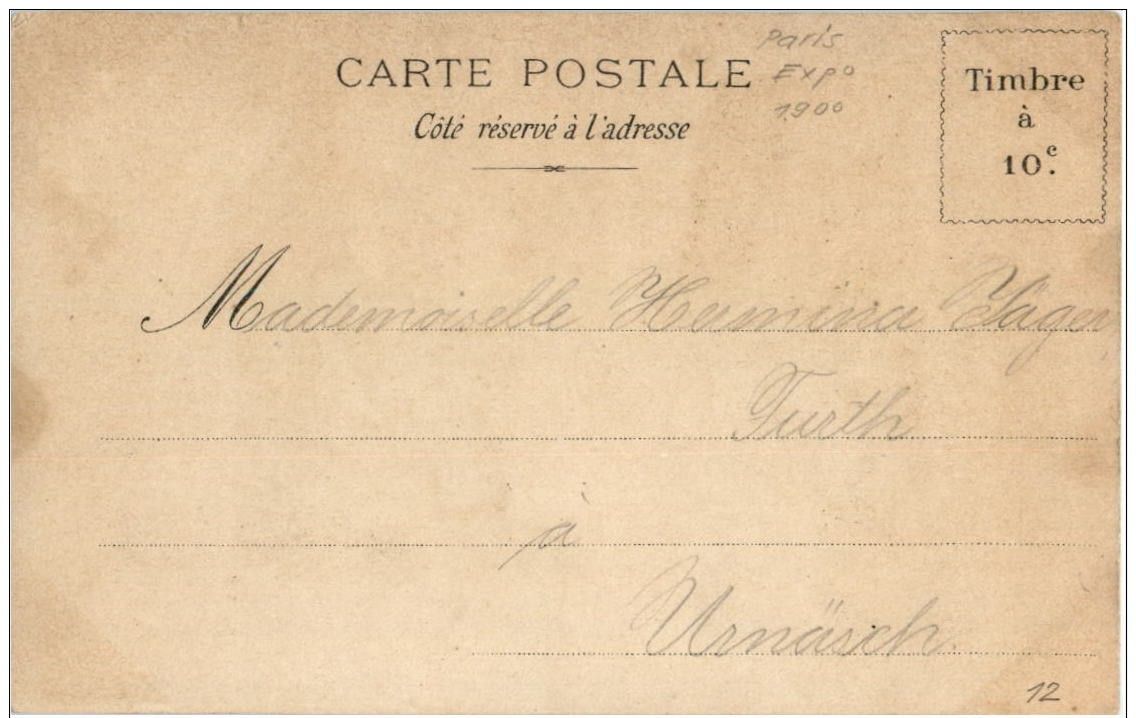 CARTE POSTALE
Côté réservé à l'adresse
Paris
Expo
1900
Timbre
à
10c.
Mademoiselle Hermina Jäger
Furth
à
Urnäsch
12